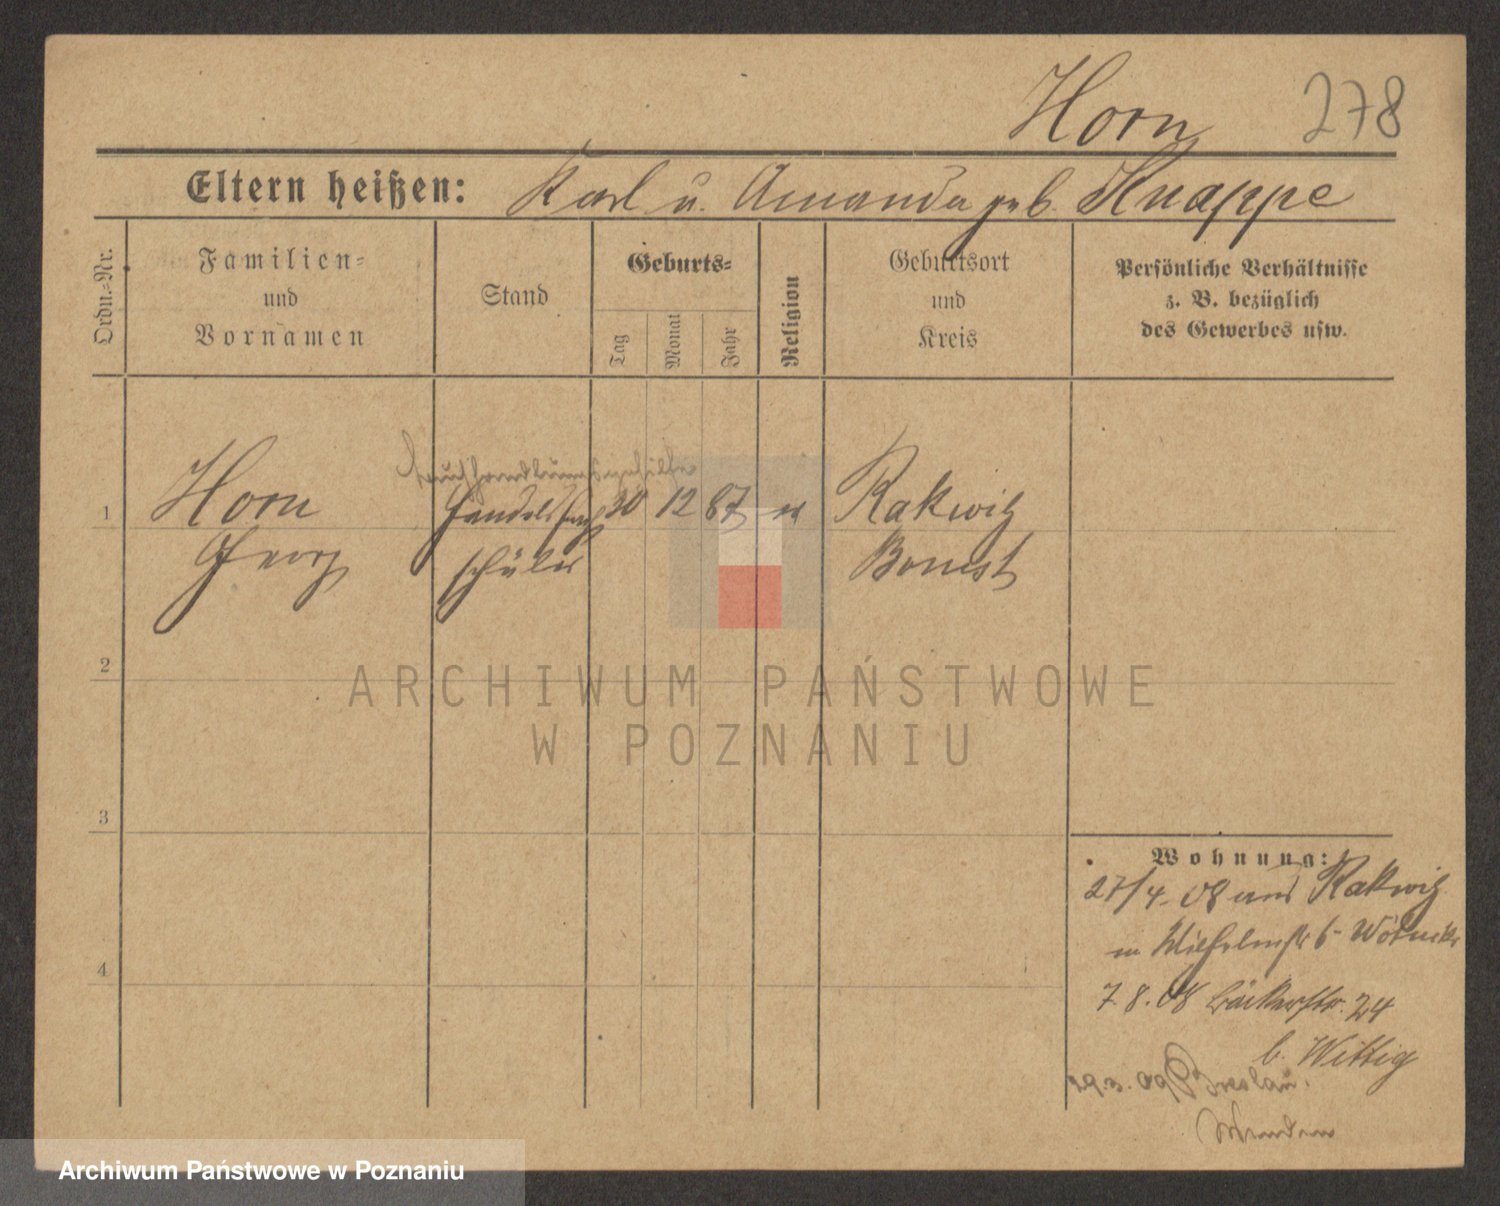 Horn 278
Eltern heißen: Karl u. Amanda geb. Knappe
Ordn.-Nr.
Familien-
und
Vornamen
Stand
Geburts-
Tag
Monat
Jahr
Religion
Geburtsort
und
Kreis
Persönliche Verhältnisse
z. B. bezüglich
des Gewerbes usw.
1 Horn 30 12 87 Rakwitz
Georg schüler Bomst
2
3
4
Wohnung:
27/4. 08 aus Rakwitz
Wilhelmstr 6
7. 8. 08 Bäckerstr. 24
b. Wittig
29.3.09 Breslau.
ARCHIWUM PAŃSTWOWE
W POZNANIU
Archiwum Państwowe w Poznaniu